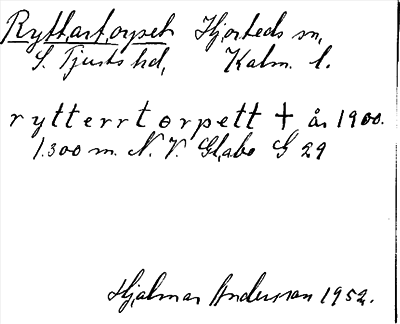 Ryttartorpet Hjorteds sn,
S. Tjusts hd, Kalm. l.
rytterrtorpett + år 1900.
1.300 m. N. V. Glabo G 29
Hjalmar Andersson 1952.